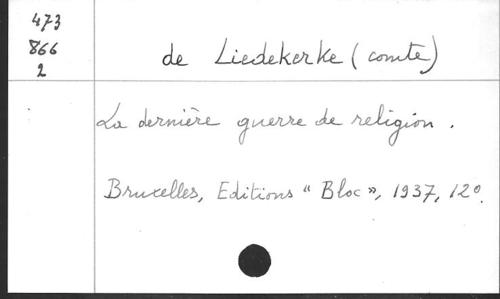 473
866
2
de Liedekerke (comte)
La dernière guerre de religion.
Bruxelles, Editions "Bloc», 1937, 12°.